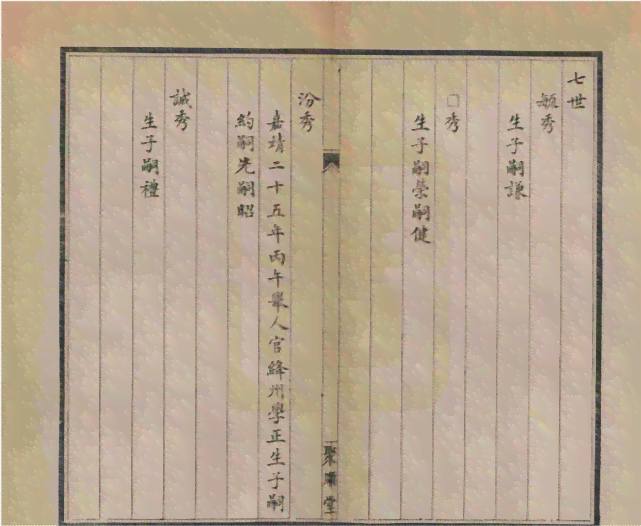 七世
穎秀
生子嗣謙
□秀
生子嗣榮嗣健
汾秀
嘉靖二十五年丙午舉人官絳州學正生子嗣
約嗣先嗣昭
誠秀
生子嗣禮
堂